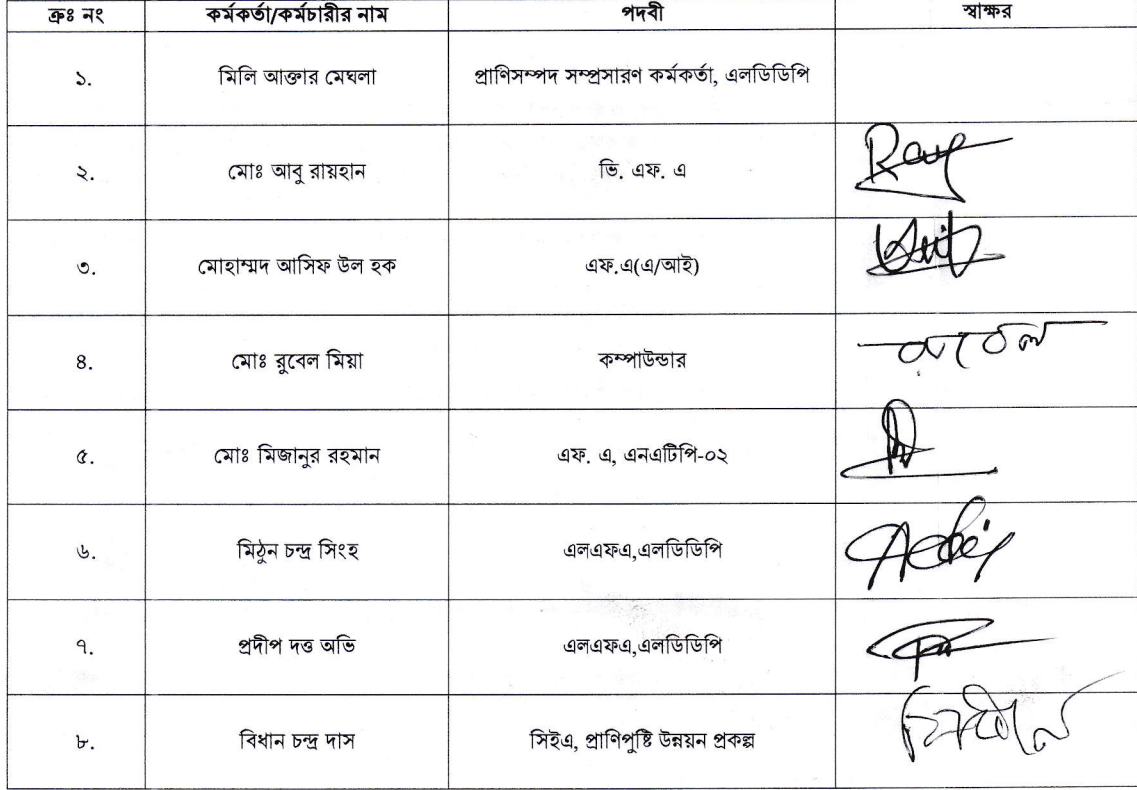 ক্রঃ নং কর্মকর্তা/কর্মচারীর নাম পদবী স্বাক্ষর
১. মিলি আক্তার মেঘলা প্রাণিসম্পদ সম্প্রসারণ কর্মকর্তা, এলডিডিপি
২. মোঃ আবু রায়হান ভি. এফ. এ
৩. মোহাম্মদ আসিফ উল হক এফ.এ(এ/আই)
৪. মোঃ রুবেল মিয়া কম্পাউন্ডার রুবেল
৫. মোঃ মিজানুর রহমান এফ. এ, এনএটিপি-০২
৬. মিঠুন চন্দ্র সিংহ এলএফএ,এলডিডিপি
৭. প্রদীপ দত্ত অভি এলএফএ,এলডিডিপি
৮. বিধান চন্দ্র দাস সিইএ, প্রাণিপুষ্টি উন্নয়ন প্রকল্প